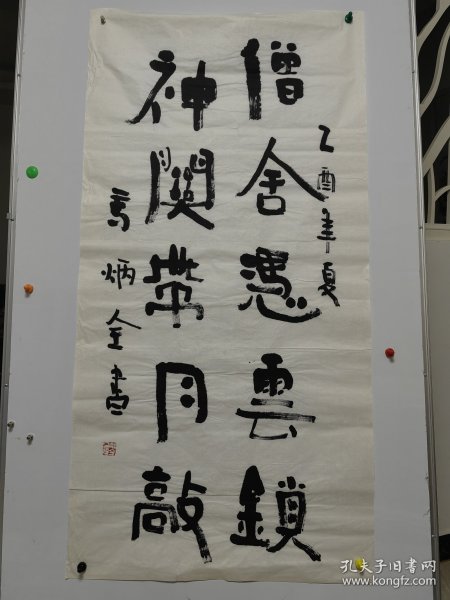 乙酉年夏
僧舍憑雲鎖
神關帶月敲
炳全書
孔夫子旧书网
www.kongfz.com